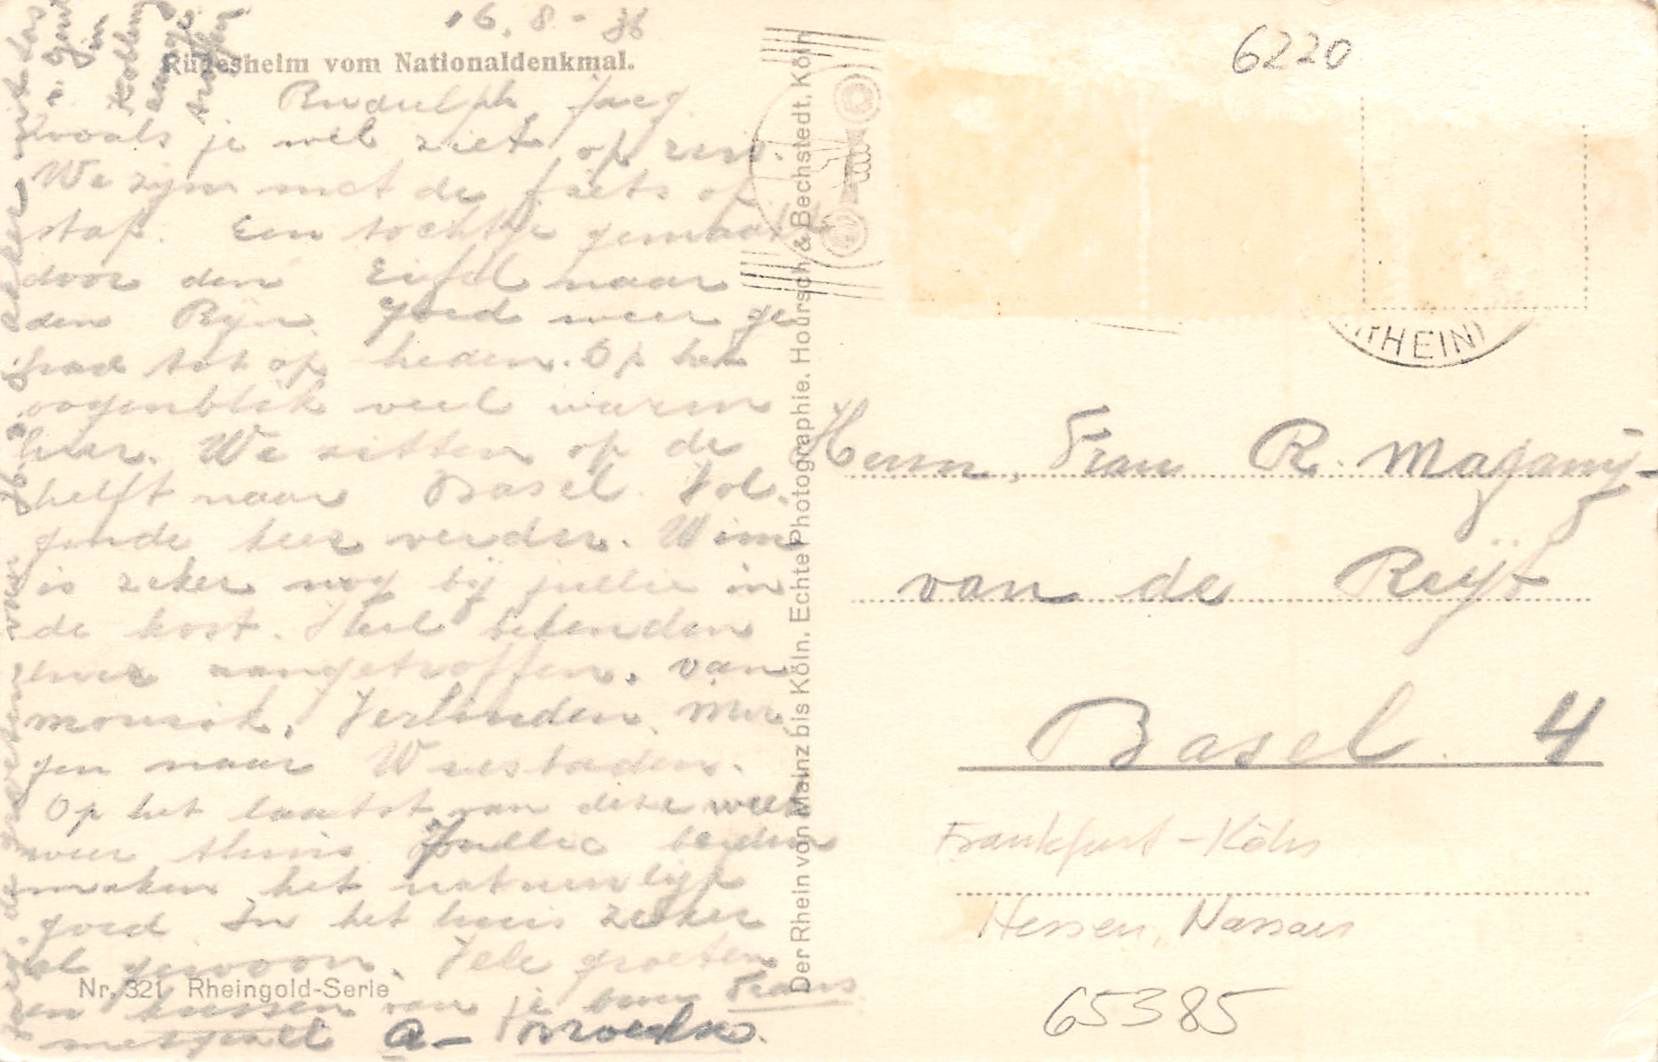 16. 8 - 36
Rüdesheim vom Nationaldenkmal.
Rudulph Jacq
zooals je wel ziet op reis.
We zijn met de fiets op
stap. Een tochtje gemaakt
door den Eifel naar
den Rijn. Goed weer ge
had tot op heden. Op het
oogenblik veel warm
hier. We zitten op de
helft naar Basel. Vol-
gende keer verder. Wim
is zeker nog bij jullie in
de kost. Heel bekenden
hier aangetroffen. van
Verlinden. Mor
gen naar Wiesbaden.
Op het laatst van deze week
weer thuis. Jullie beiden
maken het natuurlijk
goed. In het huis zeker
al gewoon. Vele groeten
en kussen van je broer Frans
Nr. 321 Rheingold-Serie
Der Rhein von Mainz bis Köln. Echte Photographie. Hoursch & Bechstedt, Köln
6220
(RHEIN)
Herrn, Frau R. Maganij-
van de Reyt
Basel. 4
Frankfurt - Köln
Hessen, Nassau
65385